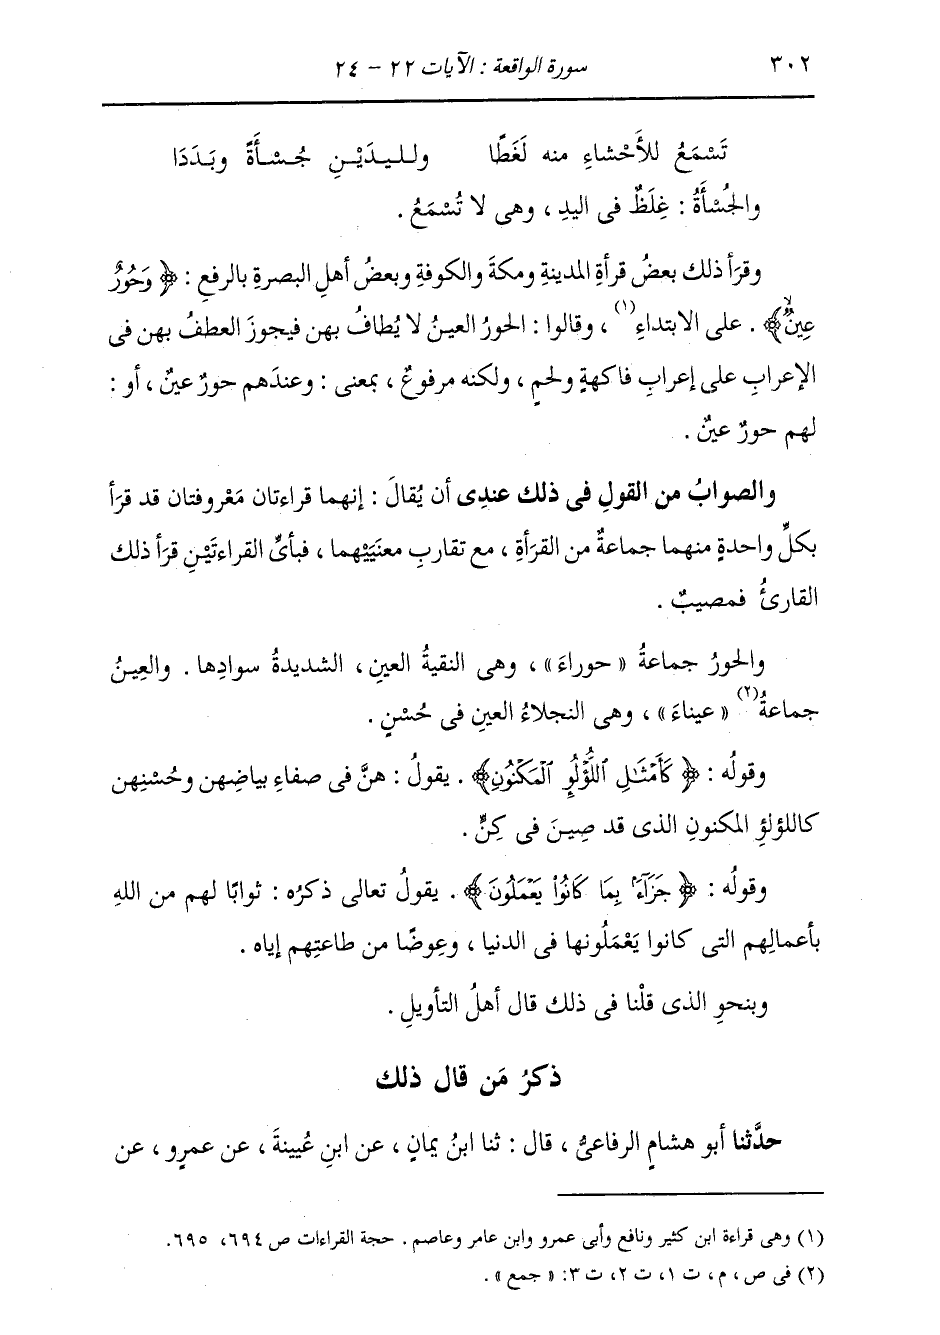 ٣٠٢ سورة الواقعة : الآيات ٢٢ - ٢٤
تَسْمَعُ للأَحْشاءِ منه لَغَطًا ولليدَيْنِ جُسْأَةً وبَدَدَا
والجُسْأَةُ : غِلَظٌ فى اليدِ ، وهى لا تُسْمَعُ .
وقرَأ ذلك بعضُ قرأةِ المدينةِ ومكةَ والكوفةِ وبعضُ أهلِ البصرةِ بالرفعِ : ﴿ وَحُورٌ
عِينٌ﴾ . على الابتداءِ(١) ، وقالوا : الحورُ العينُ لا يُطافُ بهن فيجوزَ العطفُ بهن فى
الإعرابِ على إعرابِ فاكهةٍ ولحمٍ ، ولكنه مرفوعٌ ، بمعنى : وعندَهم حورٌ عينٌ ، أو :
لهم حورٌ عينٌ .
والصوابُ من القولِ فى ذلك عندِى أن يُقالَ : إنهما قراءتان مَعْروفتان قد قرَأ
بكلِّ واحدةٍ منهما جماعةٌ من القرَأةِ ، مع تقاربِ معنَيَيْهما ، فبأىِّ القراءتَيْنِ قرَأ ذلك
القارئُ فمصيبٌ .
والحورُ جماعةُ « حوراءَ» ، وهى النقيةُ العينِ ، الشديدةُ سوادِها . والعِينُ
جماعةُ(٢) « عيناءَ» ، وهى النجلاءُ العينِ فى حُسْنٍ .
وقولُه : ﴿ كَأَمْثَـٰلِ ٱللُّؤْلُؤِ ٱلْمَكْنُونِ﴾ . يقولُ : هنَّ فى صفاءِ بياضِهن وحُسْنِهن
كاللؤلؤِ المكنونِ الذى قد صِينَ فى كِنٍّ .
وقولُه : ﴿ جَزَآءًۢ بِمَا كَانُوا۟ يَعْمَلُونَ﴾ . يقولُ تعالى ذكرُه : ثوابًا لهم من اللهِ
بأعمالِهم التى كانوا يَعْمَلُونها فى الدنيا ، وعِوضًا من طاعتِهم إياه .
وبنحوِ الذى قلْنا فى ذلك قال أهلُ التأويلِ .
ذكرُ مَن قال ذلك
حدَّثنا أبو هشامٍ الرفاعىُّ ، قال : ثنا ابنُ يمانٍ ، عن ابنِ عُيينةَ ، عن عمرٍو ، عن
(١) وهى قراءة ابن كثير ونافع وأبى عمرو وابن عامر وعاصم . حجة القراءات ص ٦٩٤، ٦٩٥.
(٢) فى ص ، م ، ت ١، ت ٢، ت ٣: « جمع» .